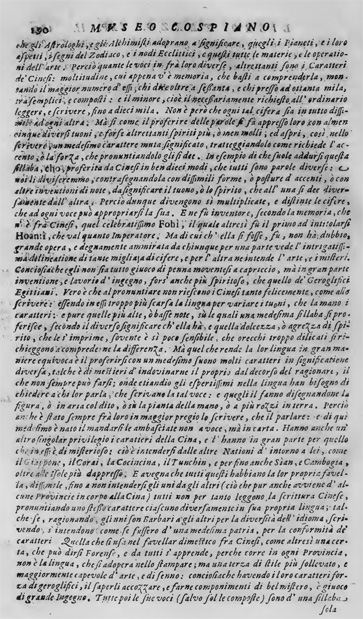 190 MVSEO COSPIANO
che gli Astrologhi, e gli Alchimisti adoprano a significare, quegli i Pianeti, e i loro
aspetti, i segni del Zodiaco, e i nodi Ecclittici; e questi tutte le materie, e le operatio-
ni dell'arte. Perciò quante le voci in frà loro diverse, altrettanti sono i Caratteri
de' Cinesi: moltitudine, cui appena v'è memoria, che basti a comprenderla, mon-
tando il maggior numero d'essi, chi dice oltre a sessanta, e chi presso ad ottanta mila,
tra semplici, e composti: e il minore, cioè il necessariamente richiesto all'ordinario
leggere, e scrivere, fino a dieci mila. Non è però che ogni lor cifera sia in tutto dissi-
mile ad ogni altra: Mà sì come il proferire delle parole si fà appresso loro con altro
cinque diversi tuoni, e forse altrettanti spiriti più, ò men molli, ed aspri, così nello
scrivere un medesimo carattere muta significato, tratteggiandolo come richiede l'ac-
cento, ò la forza, che pronuntiandolo gli si dee. In esempio di che suole addursi questa
sillaba, cho, proferita da Cinesi in ben dieci modi, che tutti sono parole diverse: e
noi li divisaremmo, contrasegnandola con dissimili forme, ò posture d'accenti, ò con
altre inventioni di note, da significare il tuono, ò lo spirito, che all'una si dee diver-
samente dall'altra. Perciò dunque divengono sì multiplicate, e distinte le cifere,
che ad ogni voce può appropriarsi la sua. E ne fù inventore, secondo la memoria, che
n'è frà Cinesi, quel celebratissimo Fohi, il quale altresì fu il primo ad intitolarsi
Hoanti, che val quanto Imperatore; Ma di cui ch'ella si fosse, fù, non hà dubbio,
grand'opera, e degnamente ammirata da chiunque per una parte vede l'intrigatissi-
ma delineatione di tante migliaja di cifere, e per l'altra ne intende l'arte, e i misteri.
Conciosiache egli non sia tutto giuoco di penna moventesi a capriccio, mà in gran parte
inventione, e lavorio d'ingegno, fors'anche più spiritoso, che quello de' Geroglifici
Egittiani. Vero è che al pronuntiare non riescono i Cinesi tanto felicemente, come allo
scrivere: essendo in essi troppo più scarsa la lingua per variare i tuoni, che la mano i
caratteri: e pure quelle più alte, ò basse note, sù le quali una medesima sillaba si pro-
ferisce, secondo il diverso significare ch'ella hà, e quella dolcezza, ò agrezza di spi-
rito, che le s'imprime, sovente è sì poco sensibile, che orecchi troppo delicati si ri-
chieggono a comprenderne la differenza. Mà quel che rende la lor lingua in gran ma-
niera equivoca è il proferirsi con un medesimo suono molti caratteri in significatione
diversa, talche è di mestieri d'indovinarne il proprio dal corso del ragionare, il
che non sempre può farsi; onde etiandio gli espertissimi nella lingua han bisogno di
chiedere a chi lor parla, che scrivano la tal voce: e quegli il fanno disegnandone la
figura, ò in aria col dito, ò sù la pianta della mano, ò a più rozzi in terra. Perciò
anche è stato sempre frà loro in maggior pregio lo scrivere, che il parlare: e di quì
medesimo è nato il mandarsi le ambasciate non a voce, mà in carta. Hanno anche un'
altro singolar privilegio i caratteri della Cina, e l'hanno in gran parte per quello
che in essi è di misterioso: ciò è intendersi dalle altre Nationi d'intorno a lei, come
il Giappone, il Corai, la Coccincina, il Tunchim, e per fino anche Sian, Cambogia,
oltre alle Isole più dappresso. E avegna che tutti questi habbiano la lor propria favel-
la, dissimile, sino a non intendersi gli uni da gli altri (ciò che pur anche avviene d'al-
cune Provincie in corpo alla Cina) tutti non per tanto leggono, la scrittura Cinese,
pronuntiando uno stesso carattere ciascuno diversamente in sua propria lingua; tal-
che, se, ragionando, gli uni son Barbari a gli altri per la diversità dell'idioma, scri-
vendo, s'intendono come se fussero d'una medesima patria, per la conformità de'
caratteri. Quella che si usa nel favellar dimestico fra Cinesi, come altresì una cer-
ta, che può dirsi Forense, e da tutti s'apprende, perche corre in ogni Provincia,
non è la lingua, che si adopera nello stampare; ma una terza di stile più sollevato, e
maggiormente capevole d'arte, e di senno: conciosiache havendo i loro caratteri for-
za di geroglifici, il saperli accozzare, e farne componimenti di bel mistero, è giuoco
di grande Ingegno. Tutte poi le sue voci (salvo sol le composte) sono d'una sillaba
sola